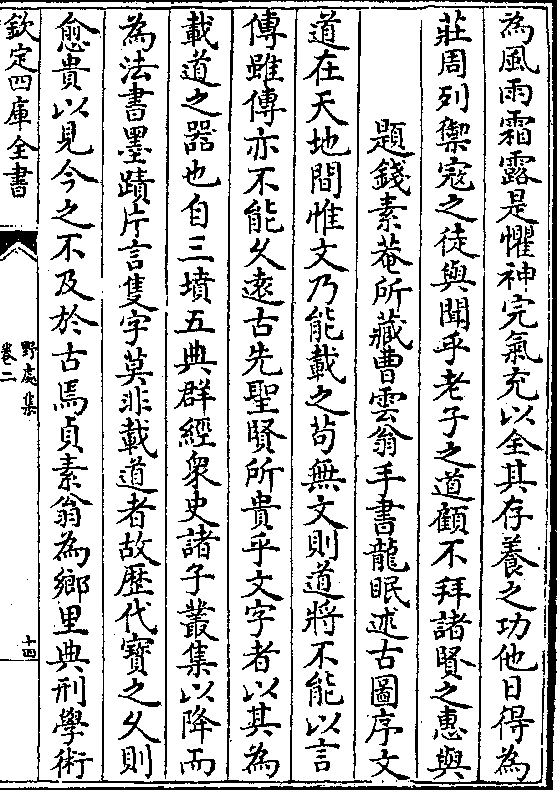 為風雨霜露是懼神完氣充以全其存養之功他日得為
莊周列禦寇之徒與聞乎老子之道顧不拜諸賢之惠與
題錢素菴所藏曹雲翁手書龍眠述古圖序文
道在天地間惟文乃能載之苟無文則道將不能以言
傳雖傳亦不能久遠古先聖賢所貴乎文字者以其為
載道之器也自三墳五典群經衆史諸子叢集以降而
為法書墨蹟片言隻字莫非載道者故歴代寳之久則
愈貴以見今之不及於古焉貞素翁為鄉里典刑學術
欽定四庫全書
野處集
卷二
十四